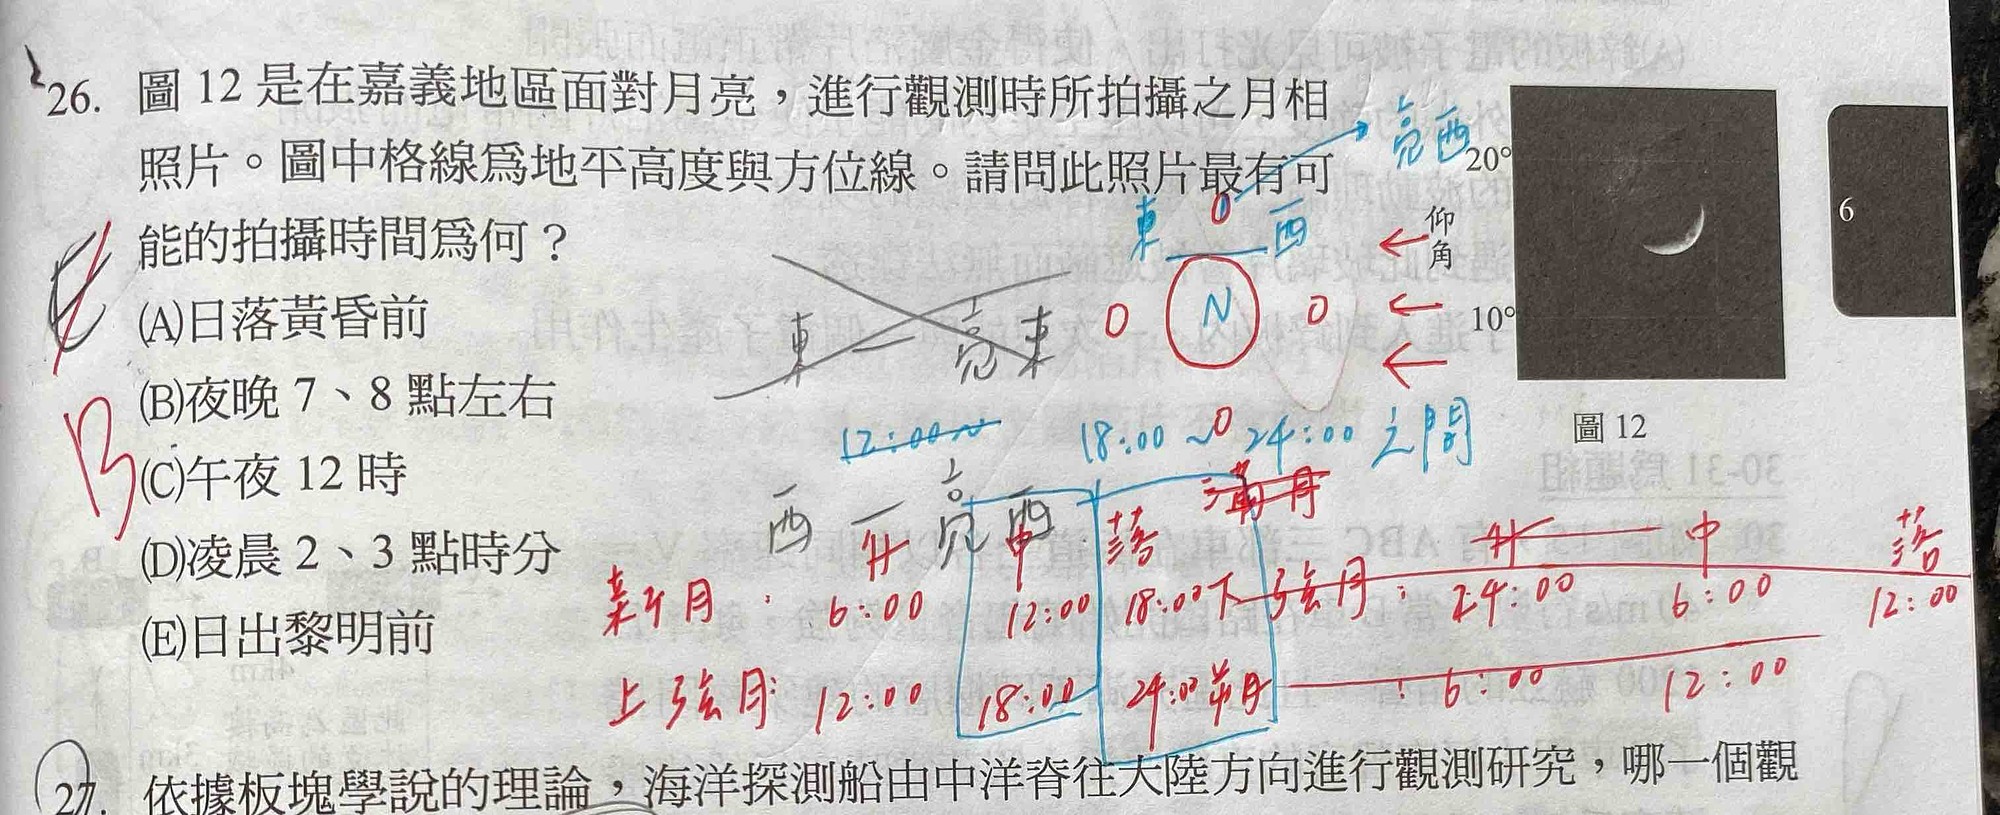 26. 圖 12 是在嘉義地區面對月亮，進行觀測時所拍攝之月相
照片。圖中格線為地平高度與方位線。請問此照片最有可
能的拍攝時間為何？
(A)日落黃昏前
(B)夜晚 7、8 點左右
(C)午夜 12 時
(D)凌晨 2、3 點時分
(E)日出黎明前
E
B
亮西
東 西
N
東 亮東
20°
仰角
10°
圖 12
6
12:00~
18:00 ~ 24:00 之間
西 亮西
滿月
升 中 落
新月： 6:00 12:00 18:00
上弦月： 12:00 18:00 24:00
升 中 落
下弦月： 24:00 6:00 12:00
： 6:00 12:00
27. 依據板塊學說的理論，海洋探測船由中洋脊往大陸方向進行觀測研究，哪一個觀